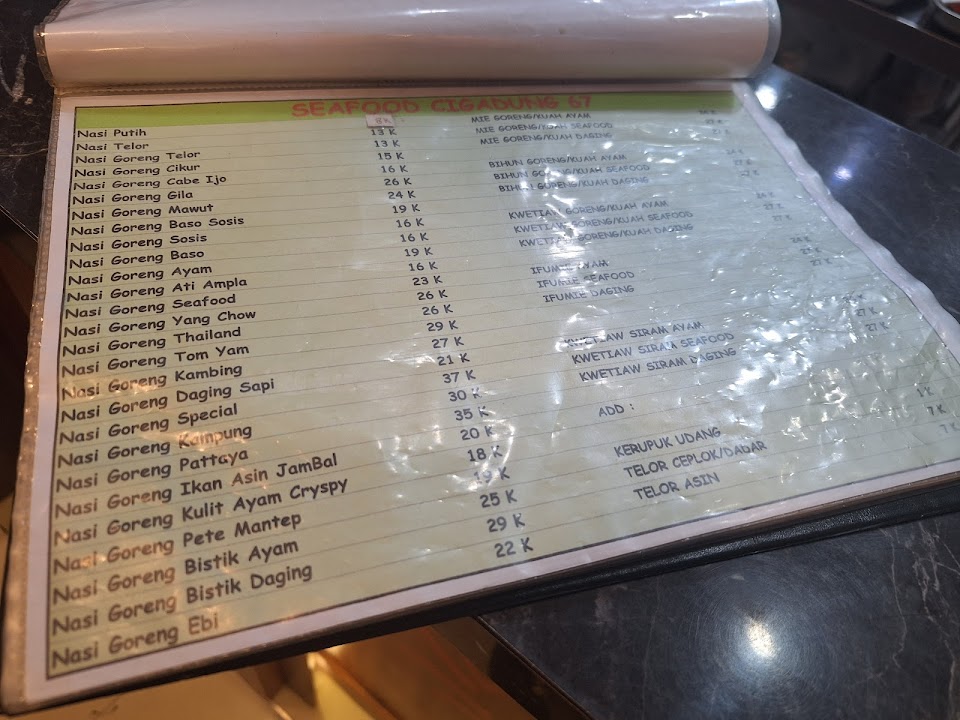 SEAFOOD CIGADUNG 67
Nasi Putih 8K
Nasi Telor 13 K
Nasi Goreng Telor 13 K
Nasi Goreng Cikur 15 K
Nasi Goreng Cabe Ijo 16 K
Nasi Goreng Gila 26 K
Nasi Goreng Mawut 24 K
Nasi Goreng Baso Sosis 19 K
Nasi Goreng Sosis 16 K
Nasi Goreng Baso 16 K
Nasi Goreng Ayam 19 K
Nasi Goreng Ati Ampla 16 K
Nasi Goreng Seafood 23 K
Nasi Goreng Yang Chow 26 K
Nasi Goreng Thailand 26 K
Nasi Goreng Tom Yam 29 K
Nasi Goreng Kambing 27 K
Nasi Goreng Daging Sapi 21 K
Nasi Goreng Special 37 K
Nasi Goreng Kampung 30 K
Nasi Goreng Pattaya 35 K
Nasi Goreng Ikan Asin JamBal 20 K
Nasi Goreng Kulit Ayam Cryspy 18 K
Nasi Goreng Pete Mantep 19 K
Nasi Goreng Bistik Ayam 25 K
Nasi Goreng Bistik Daging 29 K
Nasi Goreng Ebi 22 K
MIE GORENG/KUAH AYAM
MIE GORENG/KUAH SEAFOOD 27 K
MIE GORENG/KUAH DAGING
BIHUN GORENG/KUAH AYAM 24 K
BIHUN GORENG/KUAH SEAFOOD 27 K
BIHUN GORENG/KUAH DAGING
KWETIAW GORENG/KUAH AYAM 24 K
KWETIAW GORENG/KUAH SEAFOOD 27 K
KWETIAW GORENG/KUAH DAGING 27 K
IFUMIE AYAM 24 K
IFUMIE SEAFOOD
IFUMIE DAGING 27 K
KWETIAW SIRAM AYAM
KWETIAW SIRAM SEAFOOD 27 K
KWETIAW SIRAM DAGING 27 K
ADD :
KERUPUK UDANG 1 K
TELOR CEPLOK/DADAR 7 K
TELOR ASIN 7 K